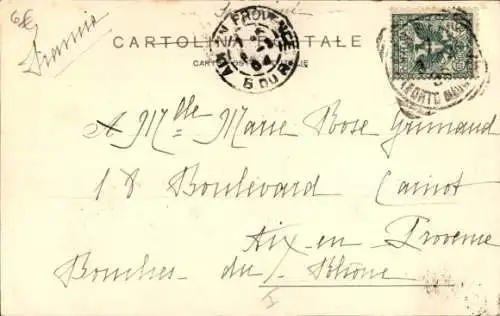 6f
Francia
CARTOLINA POSTALE
AIX EN PROVENCE
Bes DU R
A Mlle Marie Rose Grimaud
18 Boulevard Carnot
Aix-en Provence
Bouches-du-Rhône